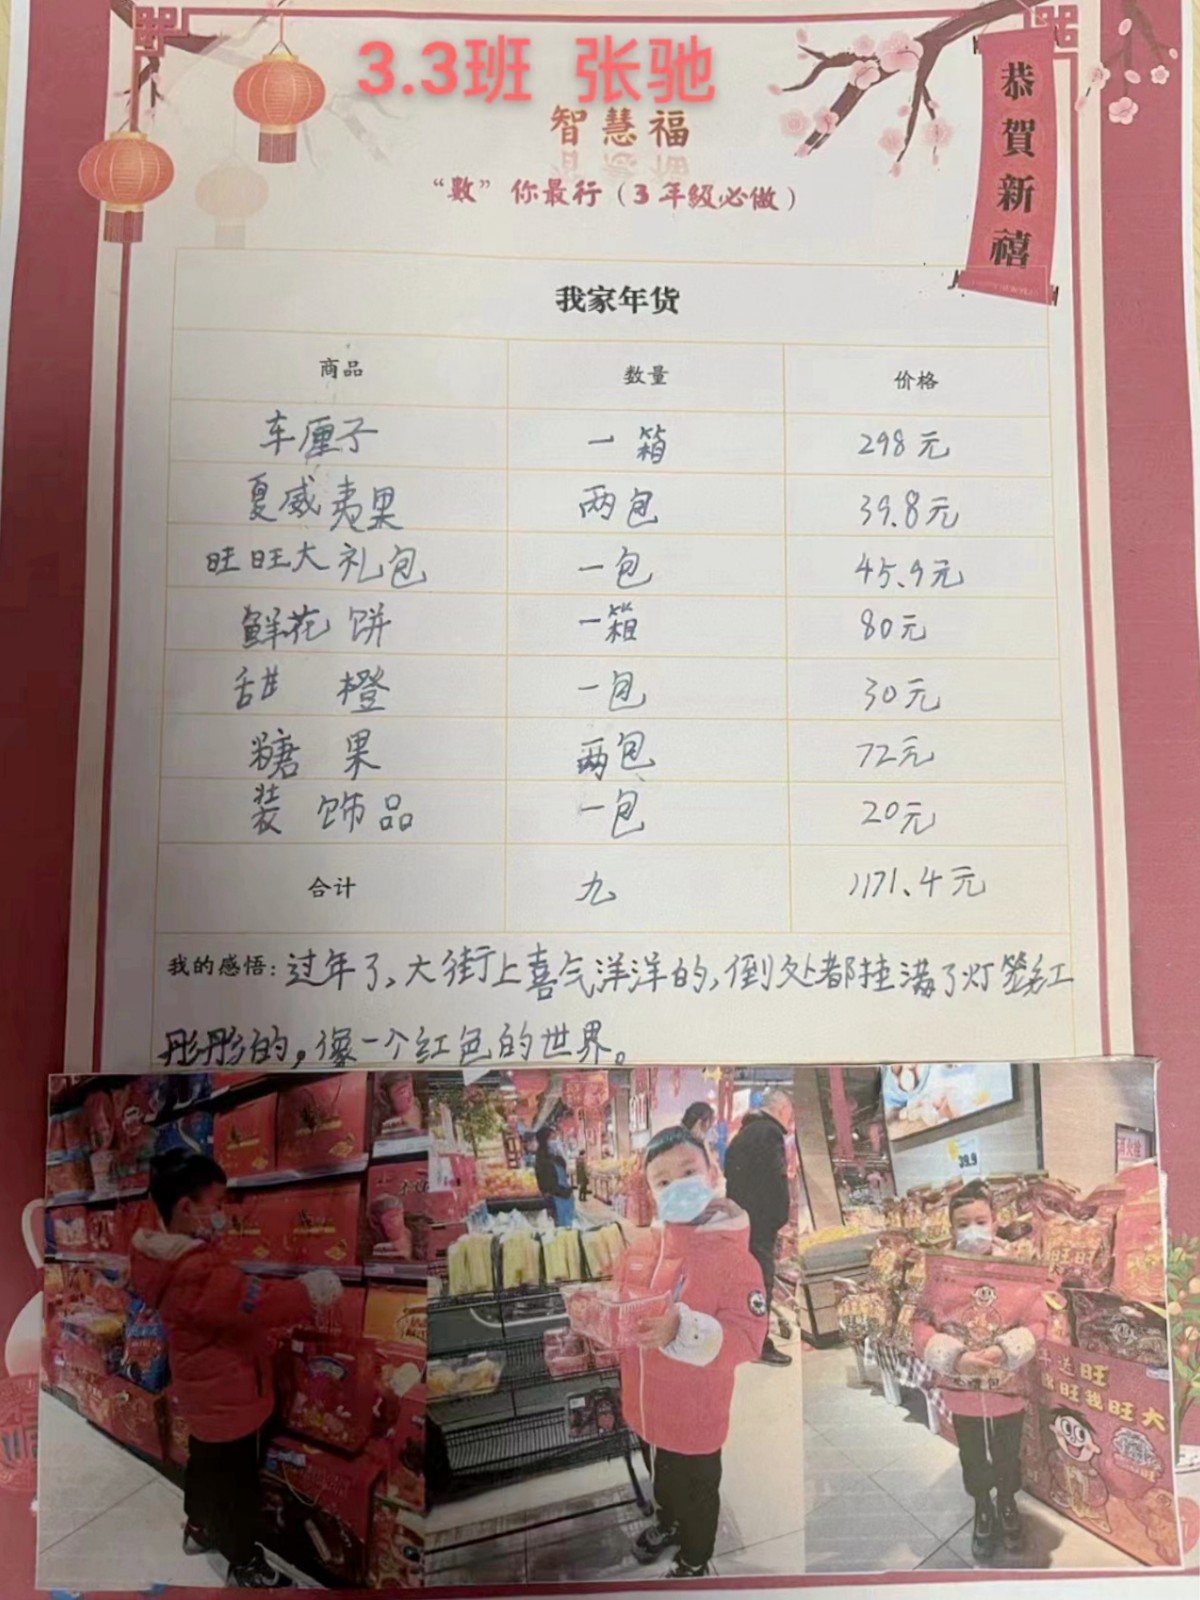 3.3班 张驰
智慧福
“数”你最行（3年级必做）
恭贺新禧
我家年货
商品 数量 价格
车厘子 一箱 298元
夏威夷果 两包 39.8元
旺旺大礼包 一包 45.9元
鲜花饼 一箱 80元
甜橙 一包 30元
糖果 两包 72元
装饰品 一包 20元
合计 九 1171.4元
我的感悟：过年了、大街上喜气洋洋的，倒处都挂满了灯笼红
彤彤的。像一个红色的世界。
39.9
旺旺
年送旺
你旺我旺大